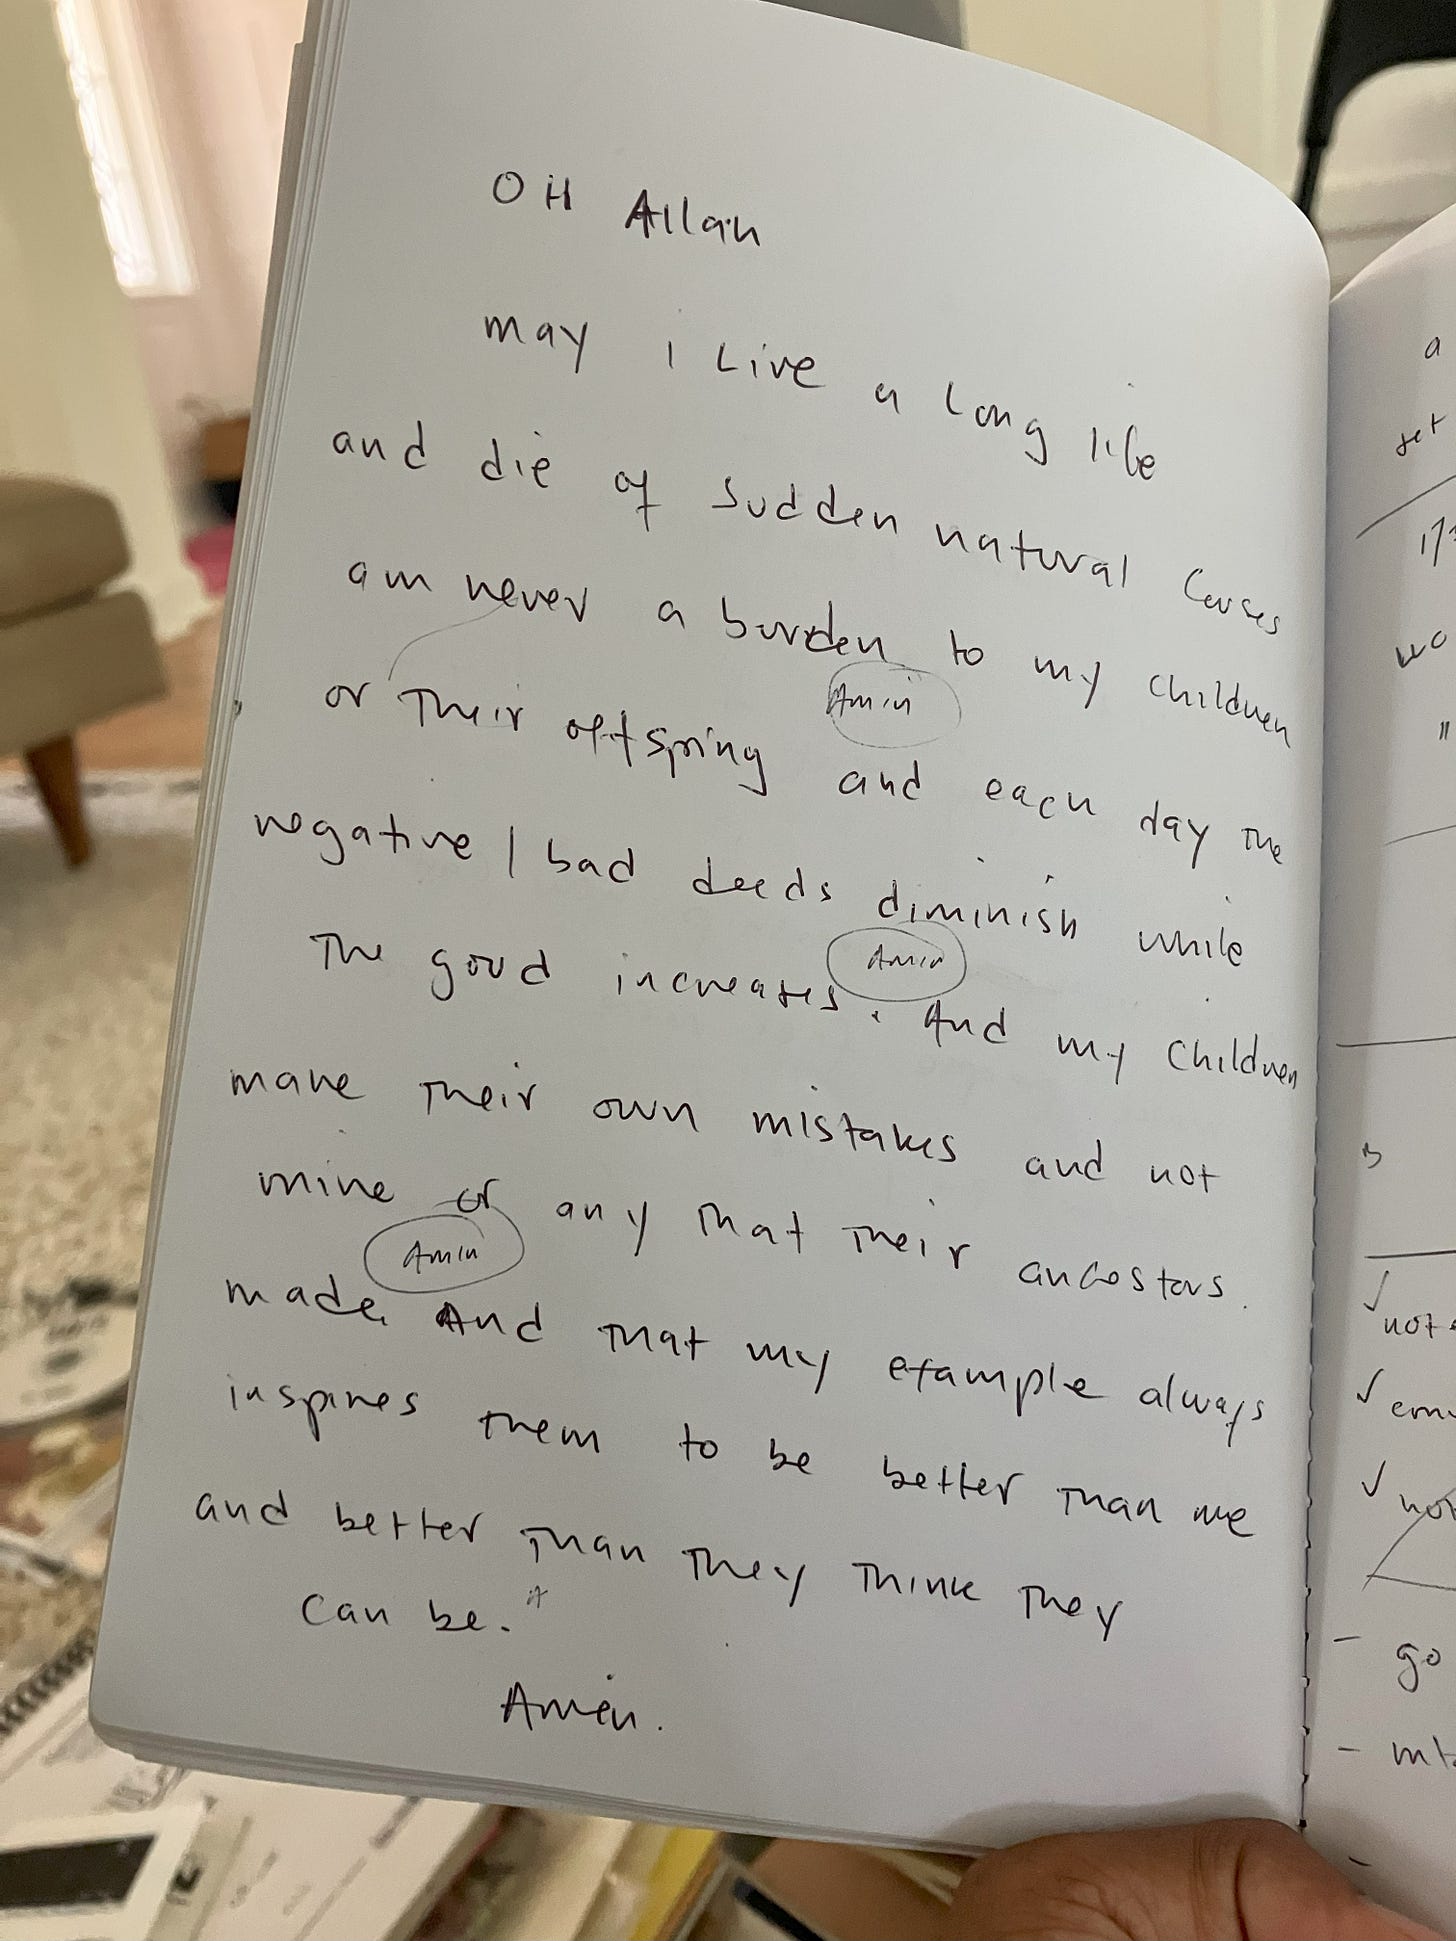 OH Allah
may i Live a long life
and die of sudden natural causes
am never a burden to my children
Amin
or Their offspring and each day The
negative / bad deeds diminish while
Amin
The good increases. And my children
make Their own mistakes and not
mine or any That Their ancestors
Amin
made. And That my example always
inspires them to be better Than me
and better Than They Think They
can be.
Amen.
a
set
wo
"
not
go